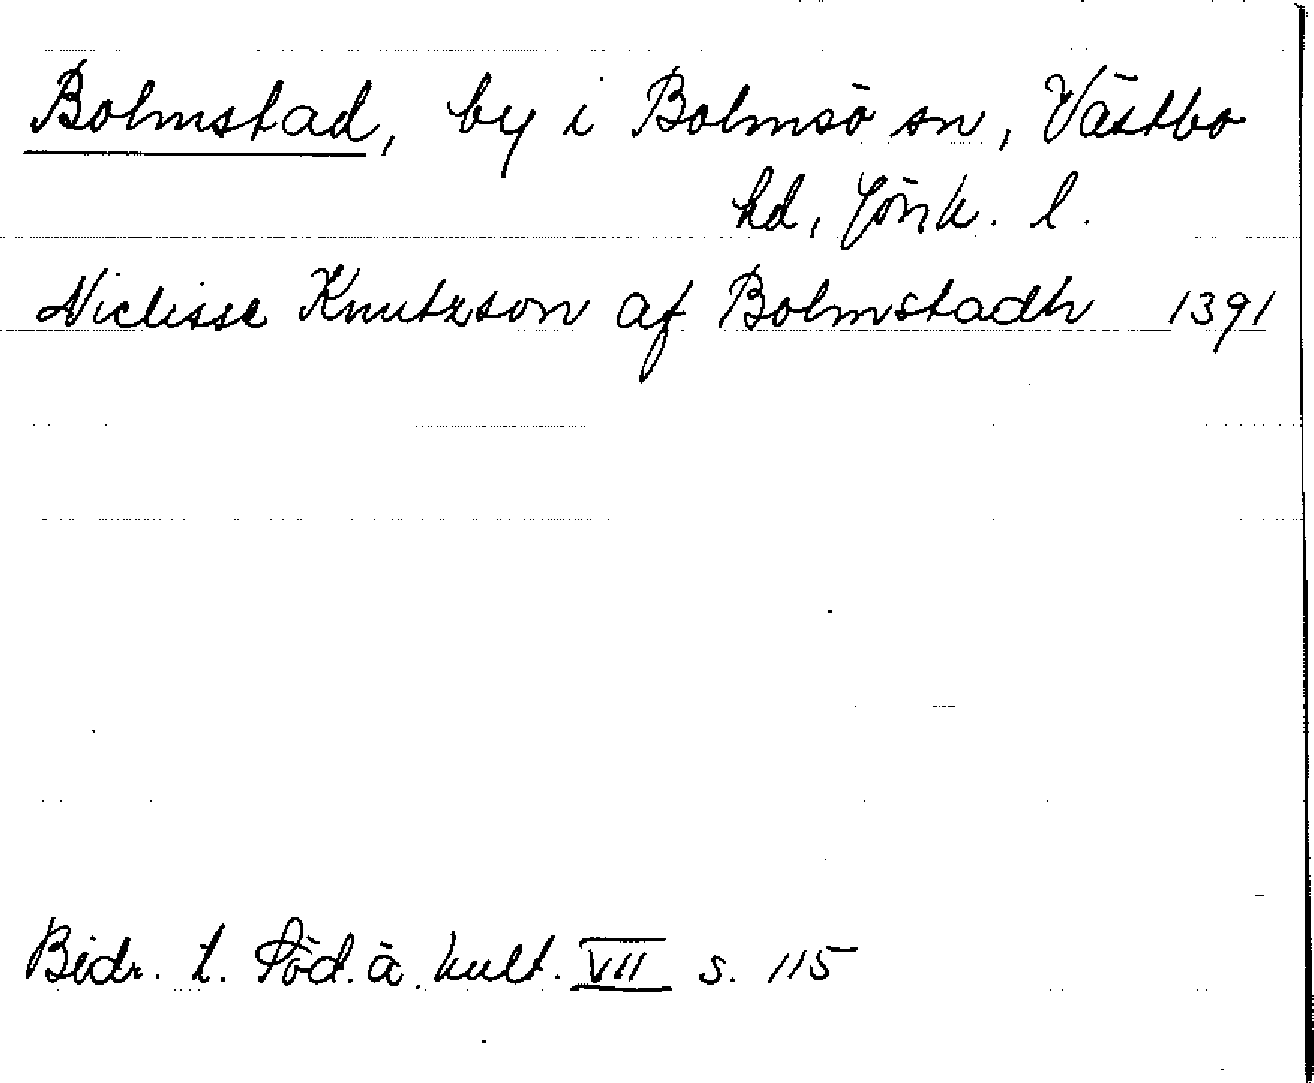 Bolmstad, by i Bolmsö sn, Västbo
hd, Jönk. l.
Niclisse Knutzson af Bolmstadh 1391
Bidr. t. Söd. ä. kult. VII s. 115